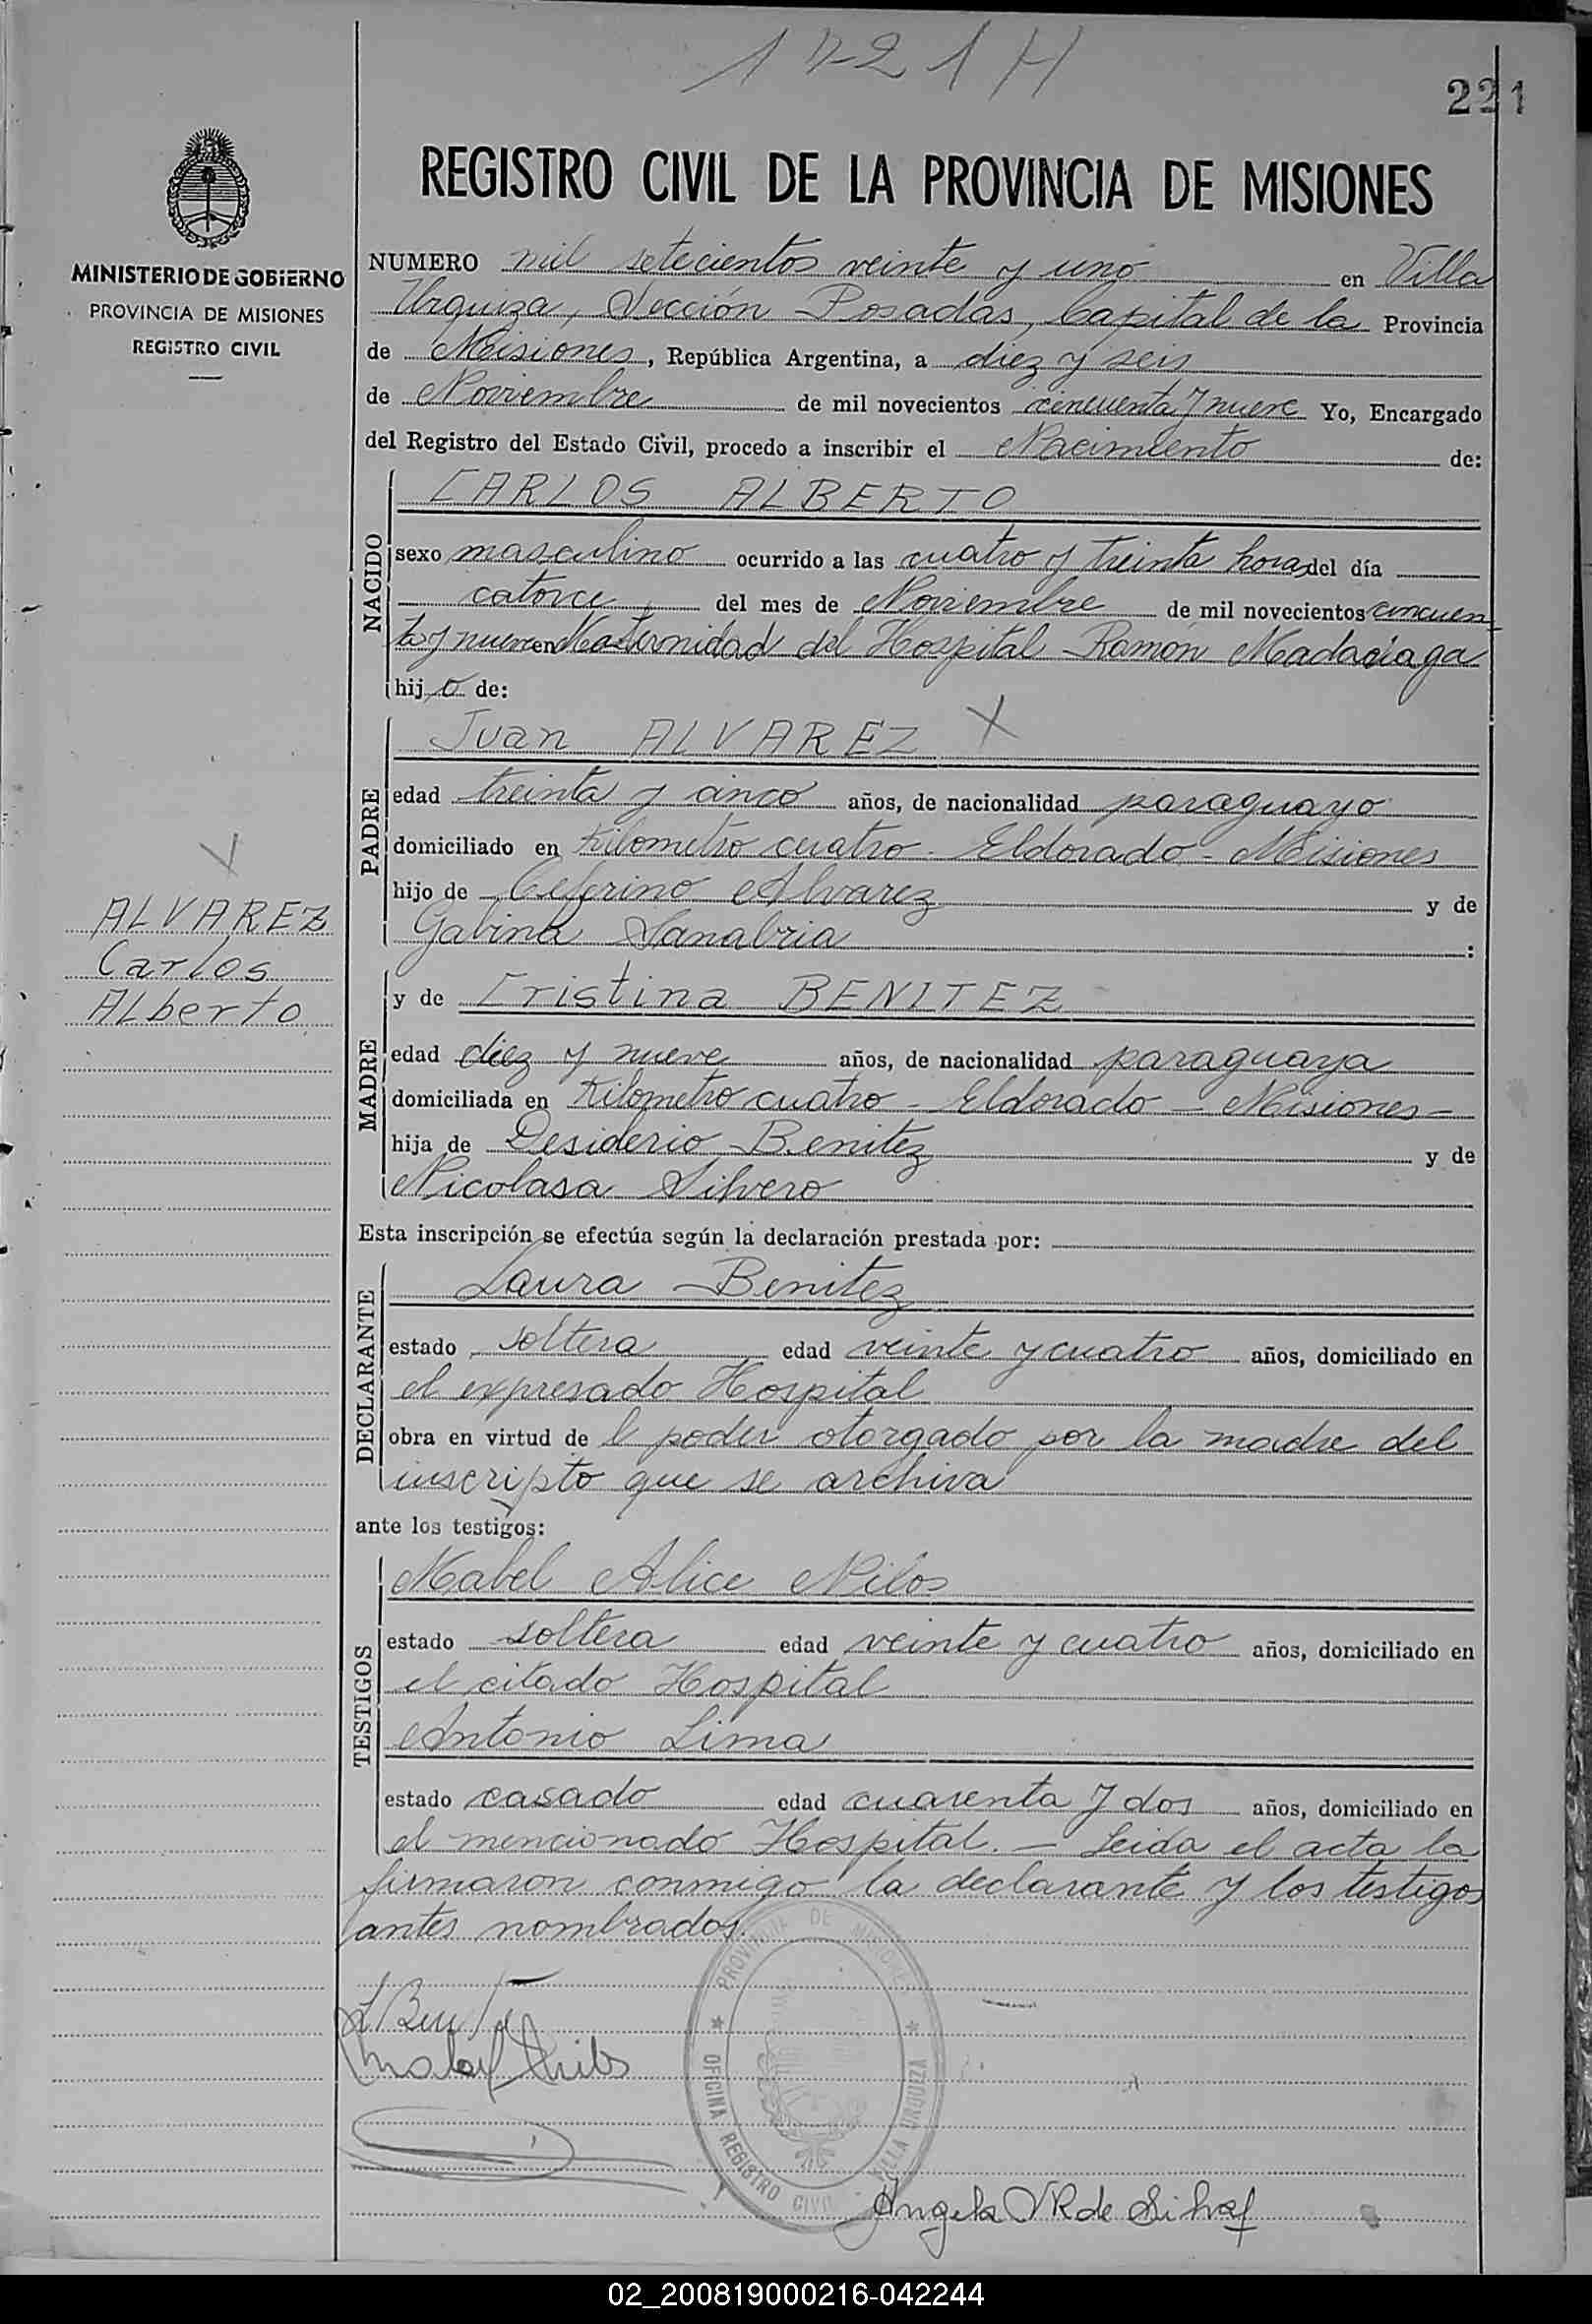 1721 H
221
REGISTRO CIVIL DE LA PROVINCIA DE MISIONES
MINISTERIO DE GOBIERNO
PROVINCIA DE MISIONES
REGISTRO CIVIL
NUMERO mil setecientos veinte y uno en Villa
Urquiza, Sección Posadas, Capital de la Provincia
de Misiones, República Argentina, a diez y seis
de Noviembre de mil novecientos cincuenta y nueve Yo, Encargado
del Registro del Estado Civil, procedo a inscribir el Nacimiento de:
NACIDO
CARLOS ALBERTO
sexo masculino ocurrido a las cuatro y treinta horas del día
catorce del mes de Noviembre de mil novecientos cincuen
ta y nueve en Maternidad del Hospital Ramón Madariaga
hijo de:
PADRE
Juan ALVAREZ X
edad treinta y cinco años, de nacionalidad paraguayo
domiciliado en Kilometro cuatro - Eldorado - Misiones
hijo de Ceferino Alvarez y de
Gabina Sanabria :
ALVAREZ
Carlos
ALberto
MADRE
y de Cristina BENITEZ
edad diez y nueve años, de nacionalidad paraguaya
domiciliada en Kilometro cuatro - Eldorado - Misiones -
hija de Desiderio Benitez y de
Nicolasa Silvero
Esta inscripción se efectúa según la declaración prestada por:
DECLARANTE
Laura Benitez
estado soltera edad veinte y cuatro años, domiciliado en
el expresado Hospital
obra en virtud de l poder otorgado por la madre del
inscripto que se archiva
ante los testigos:
TESTIGOS
Mabel Alice Nilos
estado soltera edad veinte y cuatro años, domiciliado en
el citado Hospital
Antonio Lima
estado casado edad cuarenta y dos años, domiciliado en
el mencionado Hospital. - Leida el acta la
firmaron conmigo la declarante y los testigos
antes nombrados.
PROVINCIA DE MISIONES
OFICINA REGISTRO CIVIL - VILLA URQUIZA
Angela VR de Silva
02_200819000216-042244